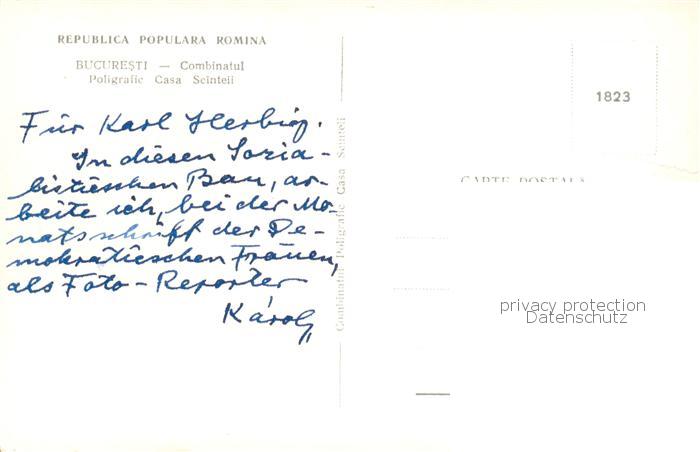 REPUBLICA POPULARA ROMINA
BUCUREȘTI — Combinatul
Poligrafic Casa Scînteii
Für Karl Herbig.
In diesen Sozia-
listieschen Bau, ar-
beite ich, bei der Mo-
natsschriff der De-
mokratieschen Frauen,
als Foto-Reporter
Károly
Combinatul Poligrafic Casa Scînteii
1823
CARTE POSTALĂ
privacy protection
Datenschutz